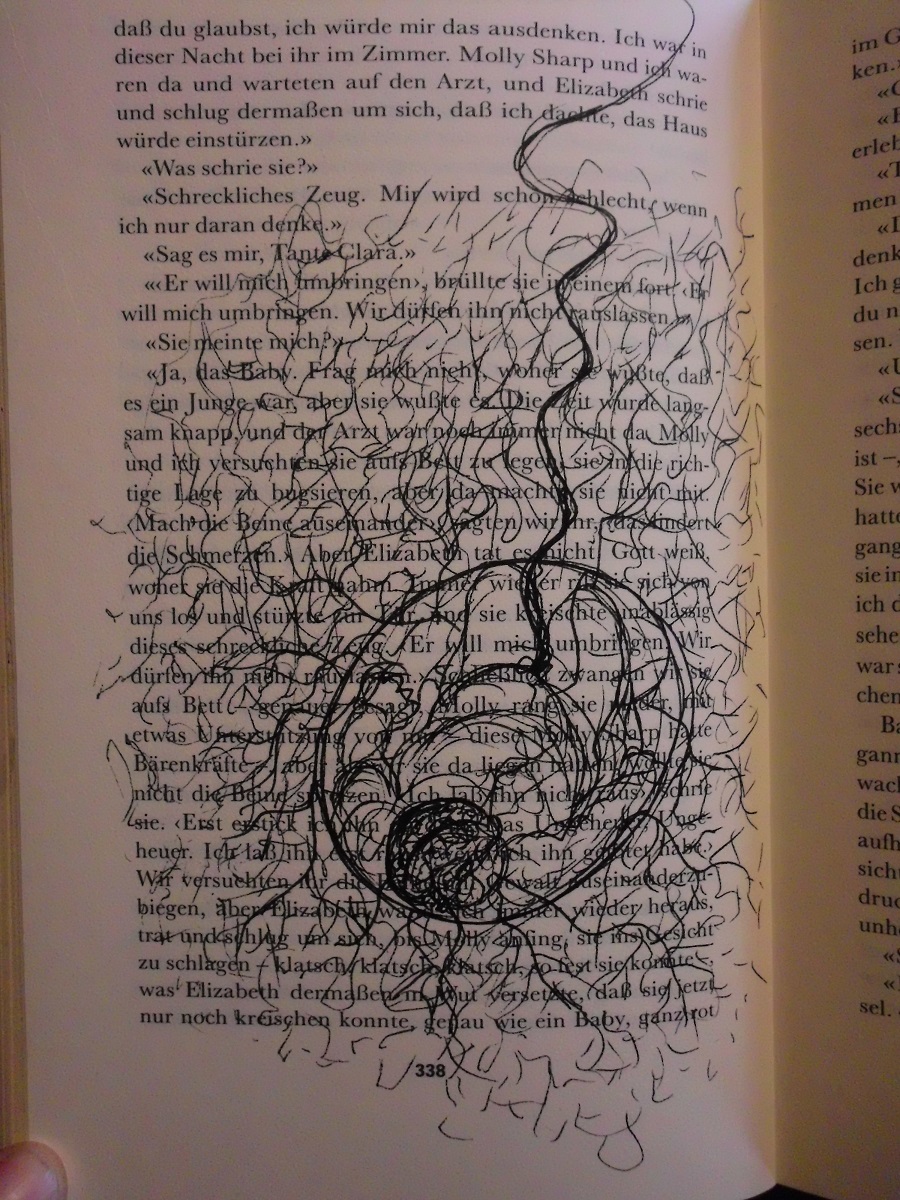 daß du glaubst, ich würde mir das ausdenken. Ich war in
dieser Nacht bei ihr im Zimmer. Molly Sharp und ich wa-
ren da und warteten auf den Arzt, und Elizabeth schrie
und schlug dermaßen um sich, daß ich dachte, das Haus
würde einstürzen.»
«Was schrie sie?»
«Schreckliches Zeug. Mir wird schon schlecht, wenn
ich nur daran denke.»
«Sag es mir, Tante Clara.»
«‹Er will mich umbringen›, brüllte sie in einem fort, ‹Er
will mich umbringen. Wir dürfen ihn nicht rauslassen.›»
«Sie meinte mich?»
«Ja, das Baby. Frag mich nicht, woher sie wußte, daß
es ein Junge war, aber sie wußte es. Die Zeit wurde lang-
sam knapp, und der Arzt war noch immer nicht da. Molly
und ich versuchten sie aufs Bett zu legen, sie in die rich-
tige Lage zu bugsieren, aber da machte sie nicht mit.
‹Mach die Beine auseinander›, sagten wir ihr, ‹das lindert
die Schmerzen.› Aber Elizabeth tat es nicht. Gott weiß,
woher sie die Kraft nahm. Immer wieder riß sie sich von
uns los und stürzte zur Tür, und sie kreischte unablässig
dieses schreckliche Zeug. ‹Er will mich umbringen. Wir
dürfen ihn nicht rauslassen.› Schließlich zwangen wir sie
aufs Bett – genauer gesagt, Molly rang sie nieder, mit
etwas Unterstützung von mir – diese Molly Sharp hatte
Bärenkräfte –, aber als wir sie da liegen hatten, wollte sie
nicht die Beine spreizen. ‹Ich laß ihn nicht raus›, schrie
sie. ‹Erst erstick ich ihn das Ungeheuer, Unge-
heuer. Ich laß ihn erst raus, wenn ich ihn getötet habe.›
Wir versuchten ihr die Beine mit Gewalt auseinanderzu-
biegen, aber Elizabeth wand sich immer wieder heraus,
trat und schlug um sich, bis Molly anfing, sie ins Gesicht
zu schlagen – klatsch, klatsch, klatsch, so fest sie konnte –,
was Elizabeth dermaßen in Wut versetzte, daß sie jetzt
nur noch kreischen konnte, genau wie ein Baby, ganz rot
338
im G
ken.»
erleb
men
denk
Ich g
du n
sen.
sechs
ist –,
Sie w
hatte
gang
sie in
ich d
sehe
war s
chen
Ba
gann
wach
die S
aufh
sicht
druc
unhe
sel.